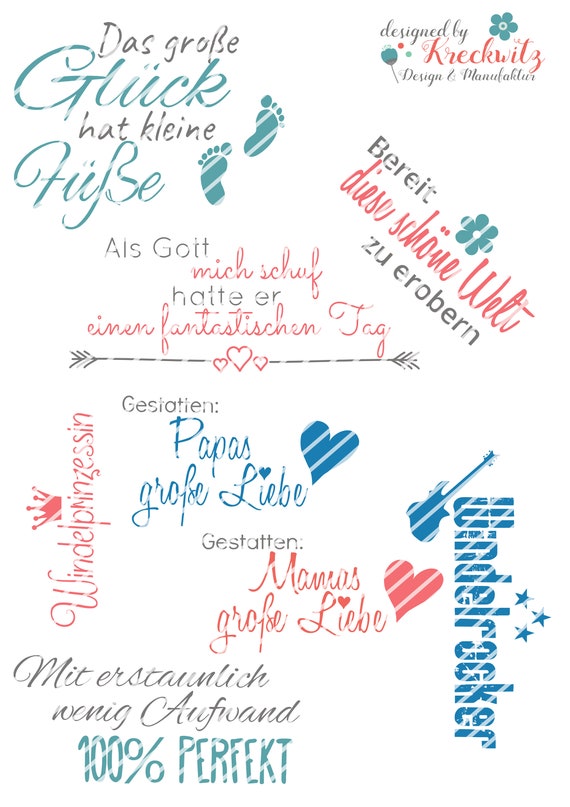 Das große
Glück
hat kleine
Füße
designed by
Kreckwitz
Design & Manufaktur
Bereit
diese schöne Welt
zu erobern
Als Gott
mich schuf
hatte er
einen fantastischen Tag
Windelprinzessin
Gestatten:
Papas
große Liebe
Gestatten:
Mamas
große Liebe
Windelrocker
Mit erstaunlich
wenig Aufwand
100% PERFEKT